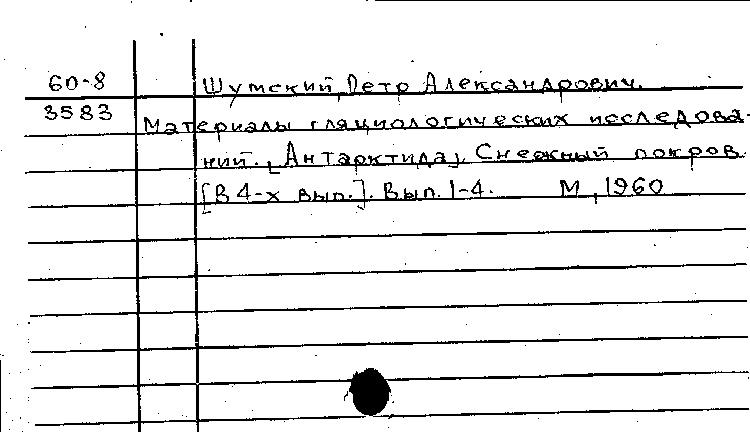 60-8 Шумский, Петр Александрович.
3583 Материалы гляциологических исследова-
ний. [Антарктида]. Снежный покров.
[В 4-х вып.]. Вып. 1-4. М., 1960